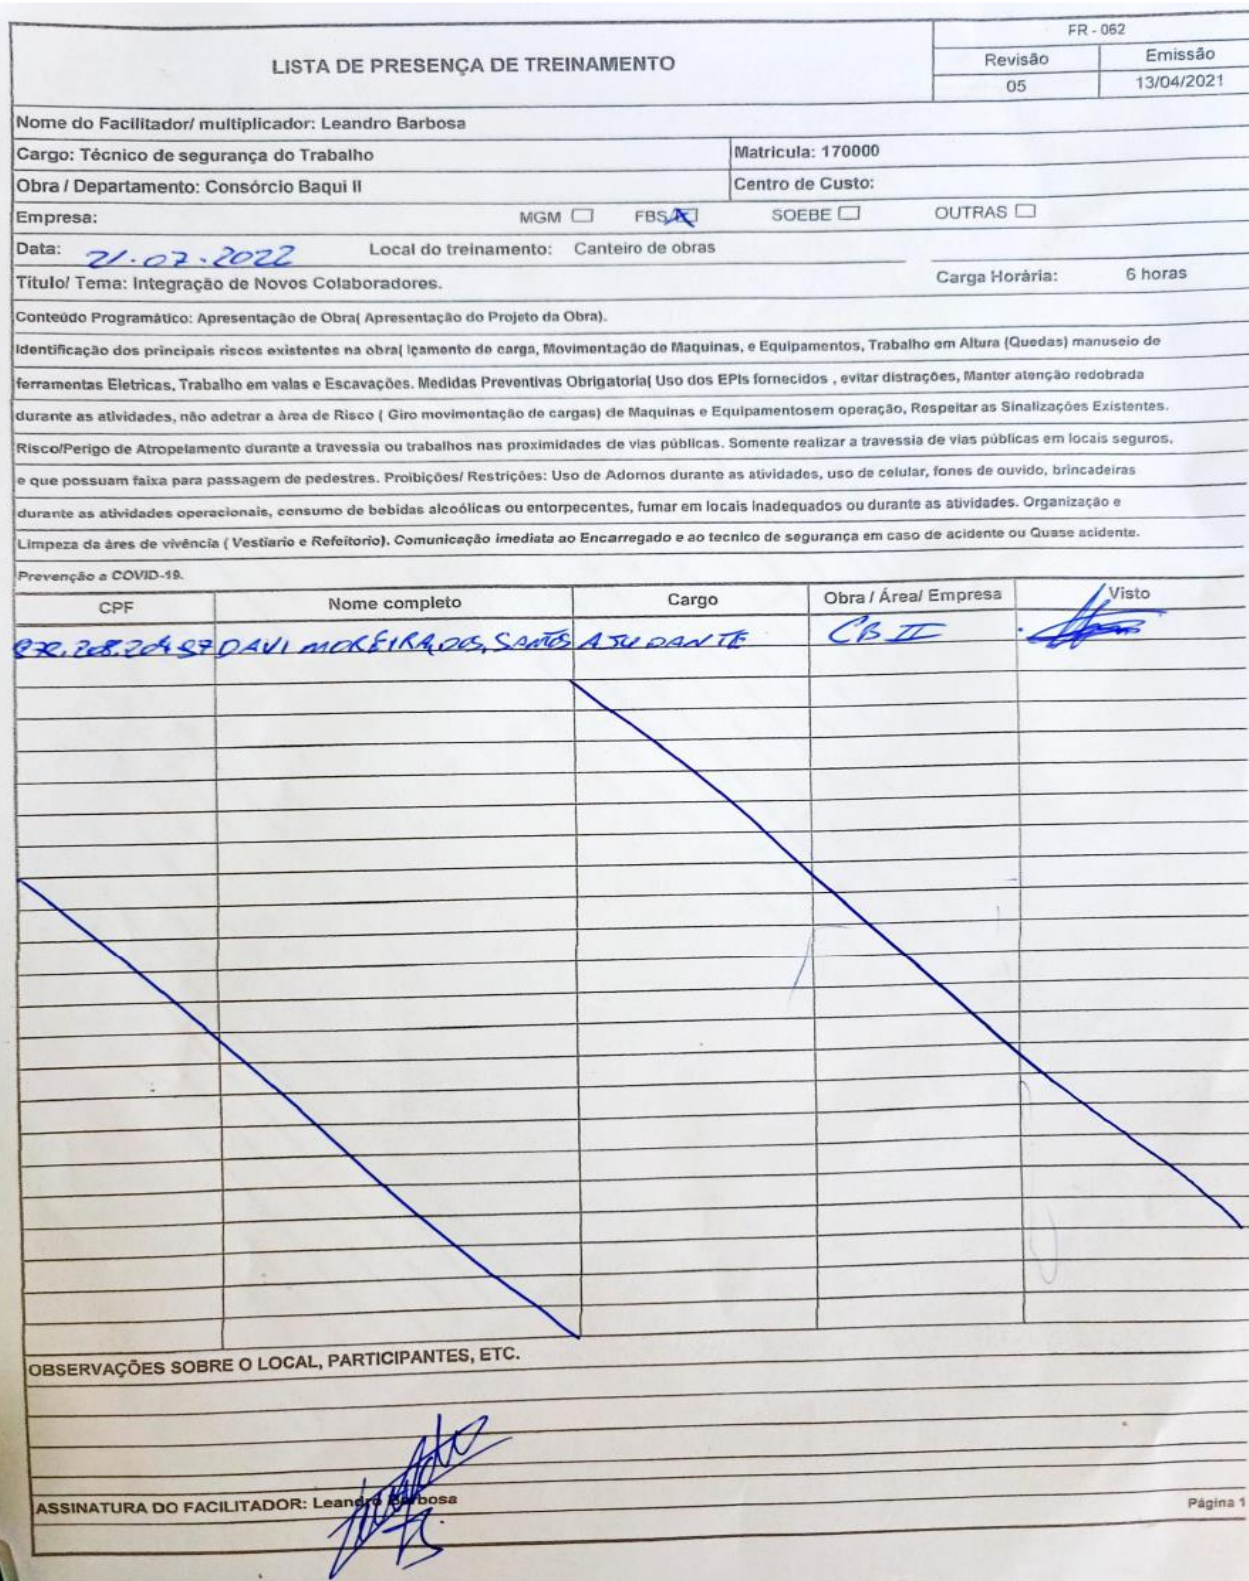 FR - 062
LISTA DE PRESENÇA DE TREINAMENTO
Revisão Emissão
05 13/04/2021
Nome do Facilitador/ multiplicador: Leandro Barbosa
Cargo: Técnico de segurança do Trabalho Matricula: 170000
Obra / Departamento: Consórcio Baqui II Centro de Custo:
Empresa: MGM FBS SOEBE OUTRAS
Data: 21.07.2022 Local do treinamento: Canteiro de obras
Título/ Tema: Integração de Novos Colaboradores. Carga Horária: 6 horas
Conteúdo Programático: Apresentação de Obra( Apresentação do Projeto da Obra).
Identificação dos principais riscos existentes na obra( Içamento de carga, Movimentação de Maquinas, e Equipamentos, Trabalho em Altura (Quedas) manuseio de
ferramentas Eletricas, Trabalho em valas e Escavações. Medidas Preventivas Obrigatoria( Uso dos EPIs fornecidos , evitar distrações, Manter atenção redobrada
durante as atividades, não adetrar a àrea de Risco ( Giro movimentação de cargas) de Maquinas e Equipamentosem operação, Respeitar as Sinalizações Existentes.
Risco/Perigo de Atropelamento durante a travessia ou trabalhos nas proximidades de vias públicas. Somente realizar a travessia de vias públicas em locais seguros,
e que possuam faixa para passagem de pedestres. Proibições/ Restrições: Uso de Adornos durante as atividades, uso de celular, fones de ouvido, brincadeiras
durante as atividades operacionais, consumo de bebidas alcoólicas ou entorpecentes, fumar em locais inadequados ou durante as atividades. Organização e
Limpeza da áres de vivência ( Vestiario e Refeitorio). Comunicação imediata ao Encarregado e ao tecnico de segurança em caso de acidente ou Quase acidente.
Prevenção a COVID-19.
CPF Nome completo Cargo Obra / Área/ Empresa Visto
DAVI MOREIRA DOS SANTOS AJUDANTE CB II
OBSERVAÇÕES SOBRE O LOCAL, PARTICIPANTES, ETC.
ASSINATURA DO FACILITADOR: Leandro Barbosa
Página 1